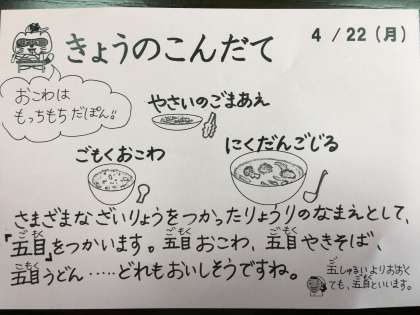 きょうのこんだて
4 / 22 (月)
おこわは
もっちもちだぽん!!
やさいのごまあえ
ごもくおこわ
にくだんごじる
さまざまなざいりょうをつかったりょうりのなまえとして、
『五目』をつかいます。五目おこわ、五目やきそば、
五目うどん……どれもおいしそうですね。
五しゅるいよりおおく
ても、五目といいます。